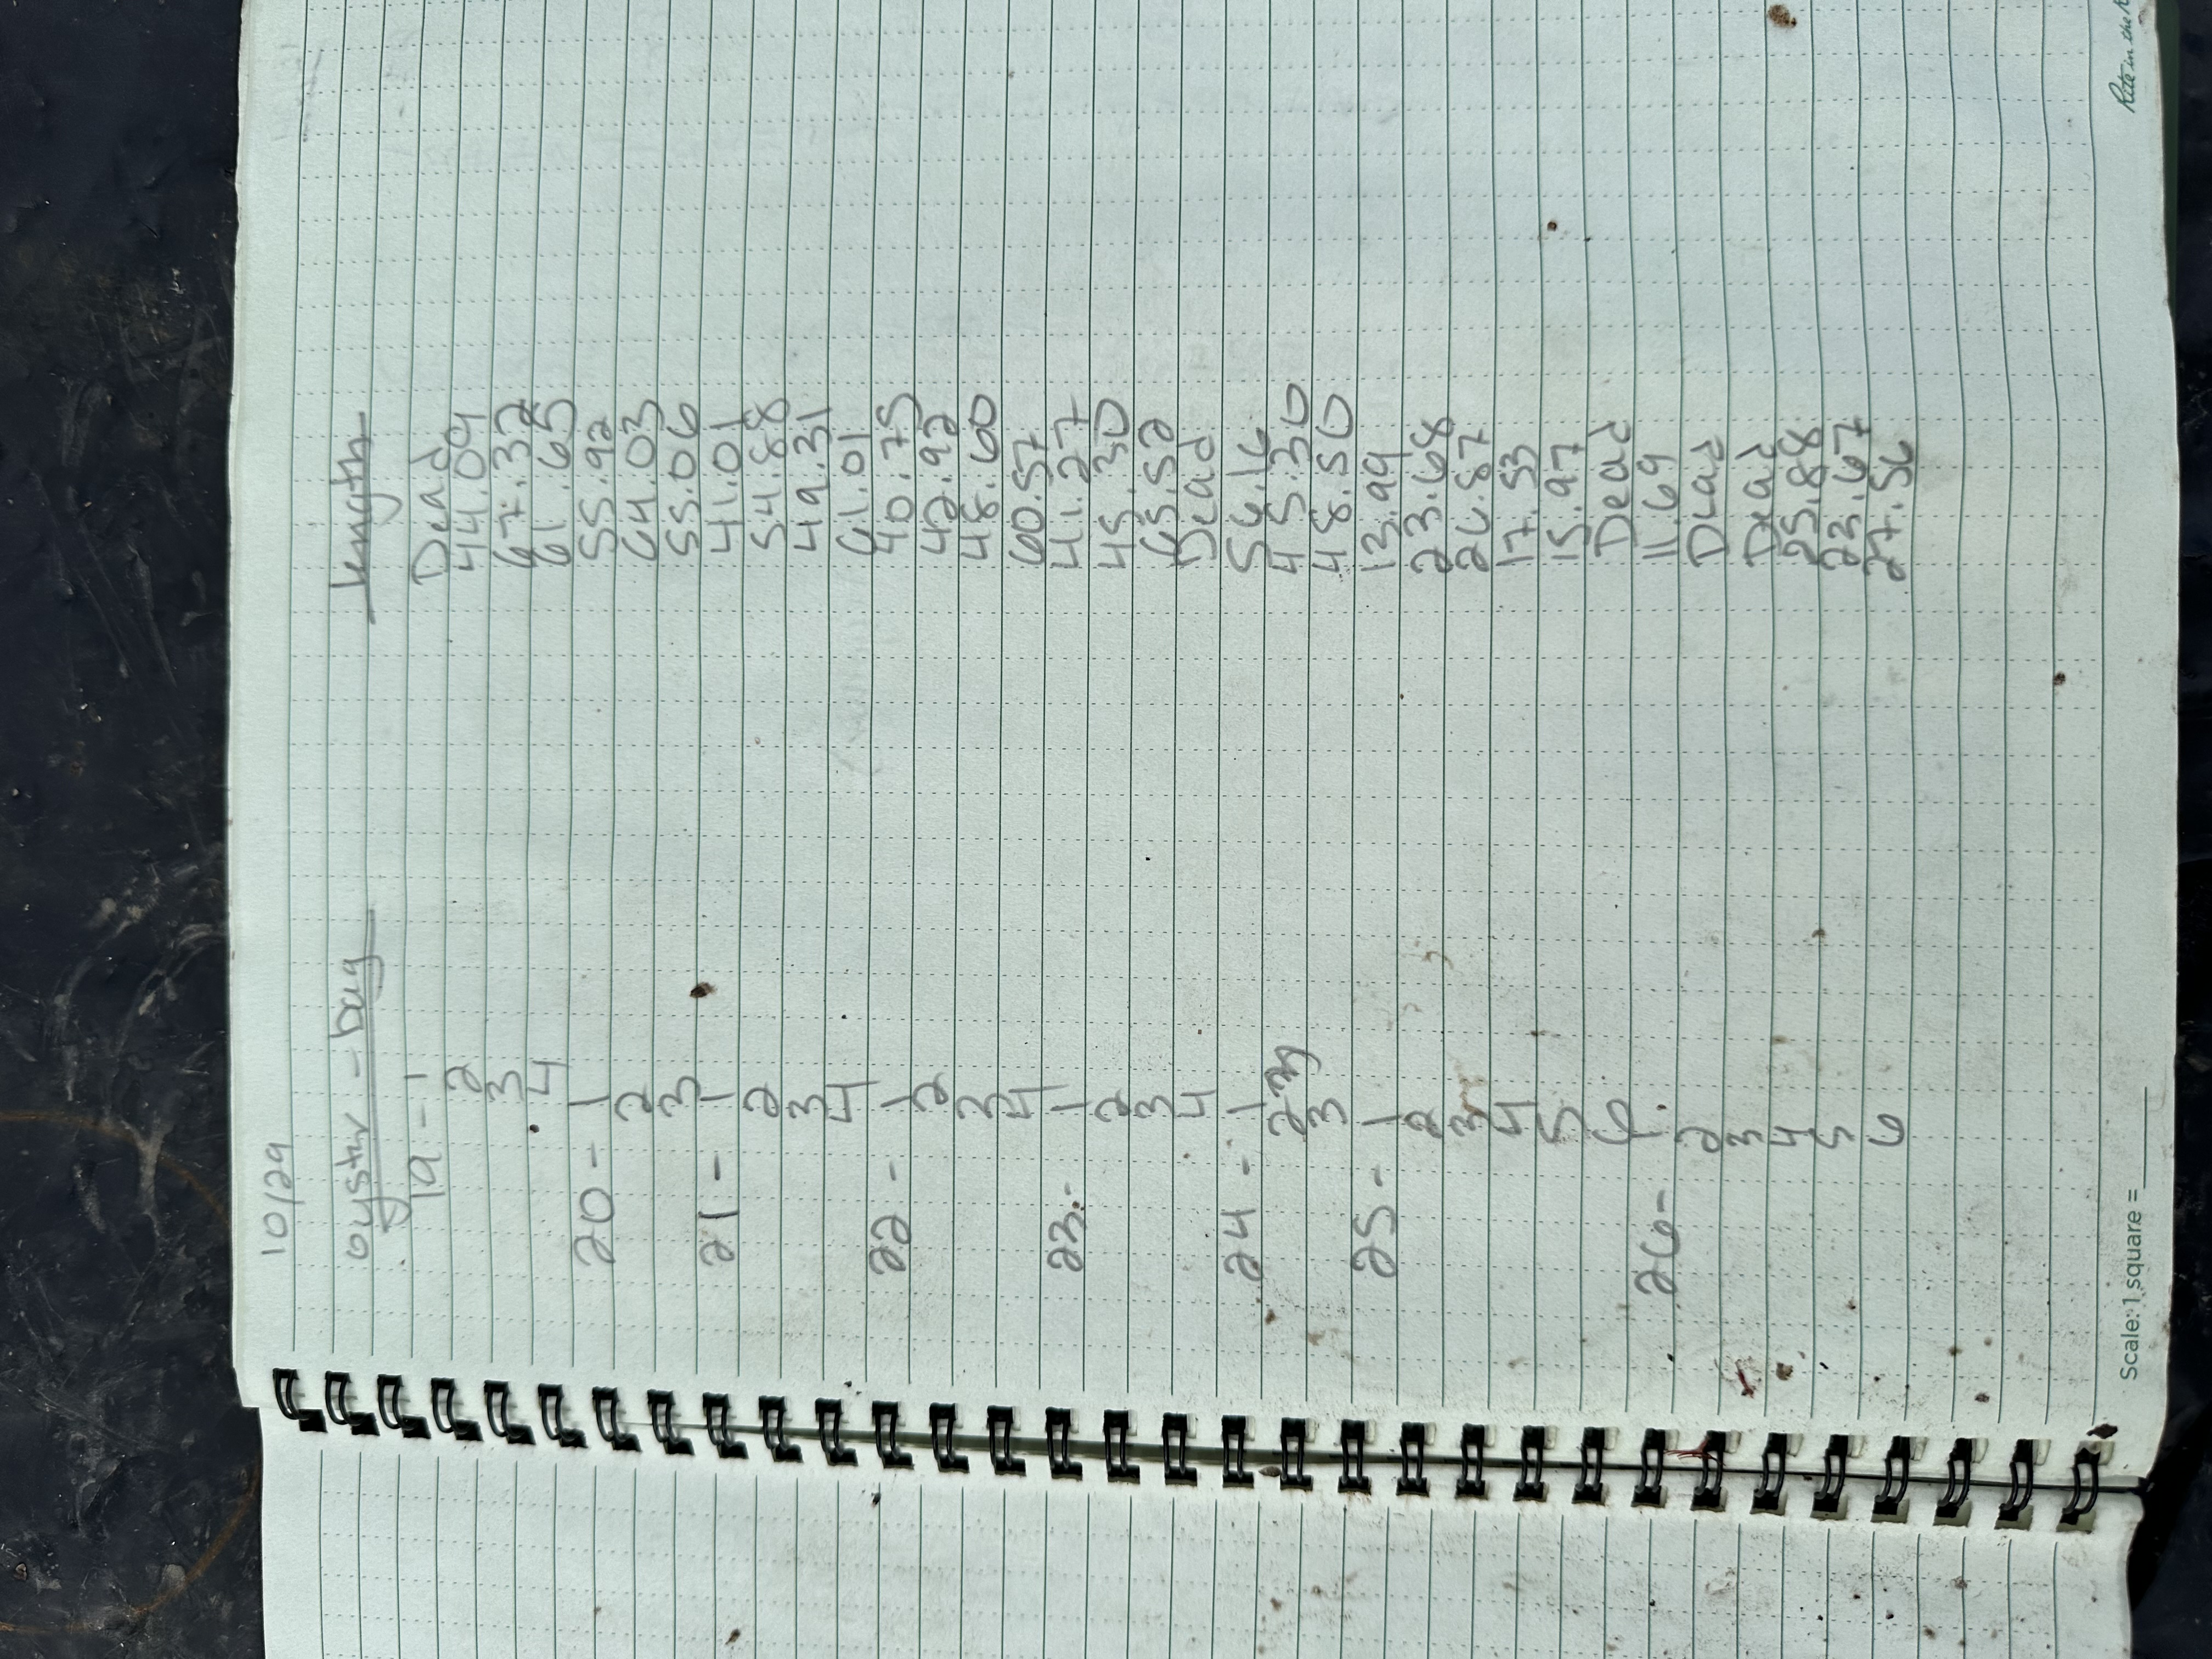 10/29
oyster - bag length
19 - 1 Dead
2 44.09
3 67.32
4 61.65
20 - 1 55.92
2 64.03
3 55.06
21 - 1 41.01
2 54.88
3 49.31
4 61.01
22 - 1 40.75
2 42.92
3 48.60
4 60.57
23 - 1 41.27
2 45.30
3 65.52
4 Dead
24 - 1 56.16
2 45.30
3 48.50
25 - 1 13.99
2 23.68
3 26.87
4 17.53
5 15.97
6 Dead
26 - 1 11.69
2 Dead
3 Dead
4 25.88
5 23.67
6 27.56
Scale: 1 square =
Rite in the